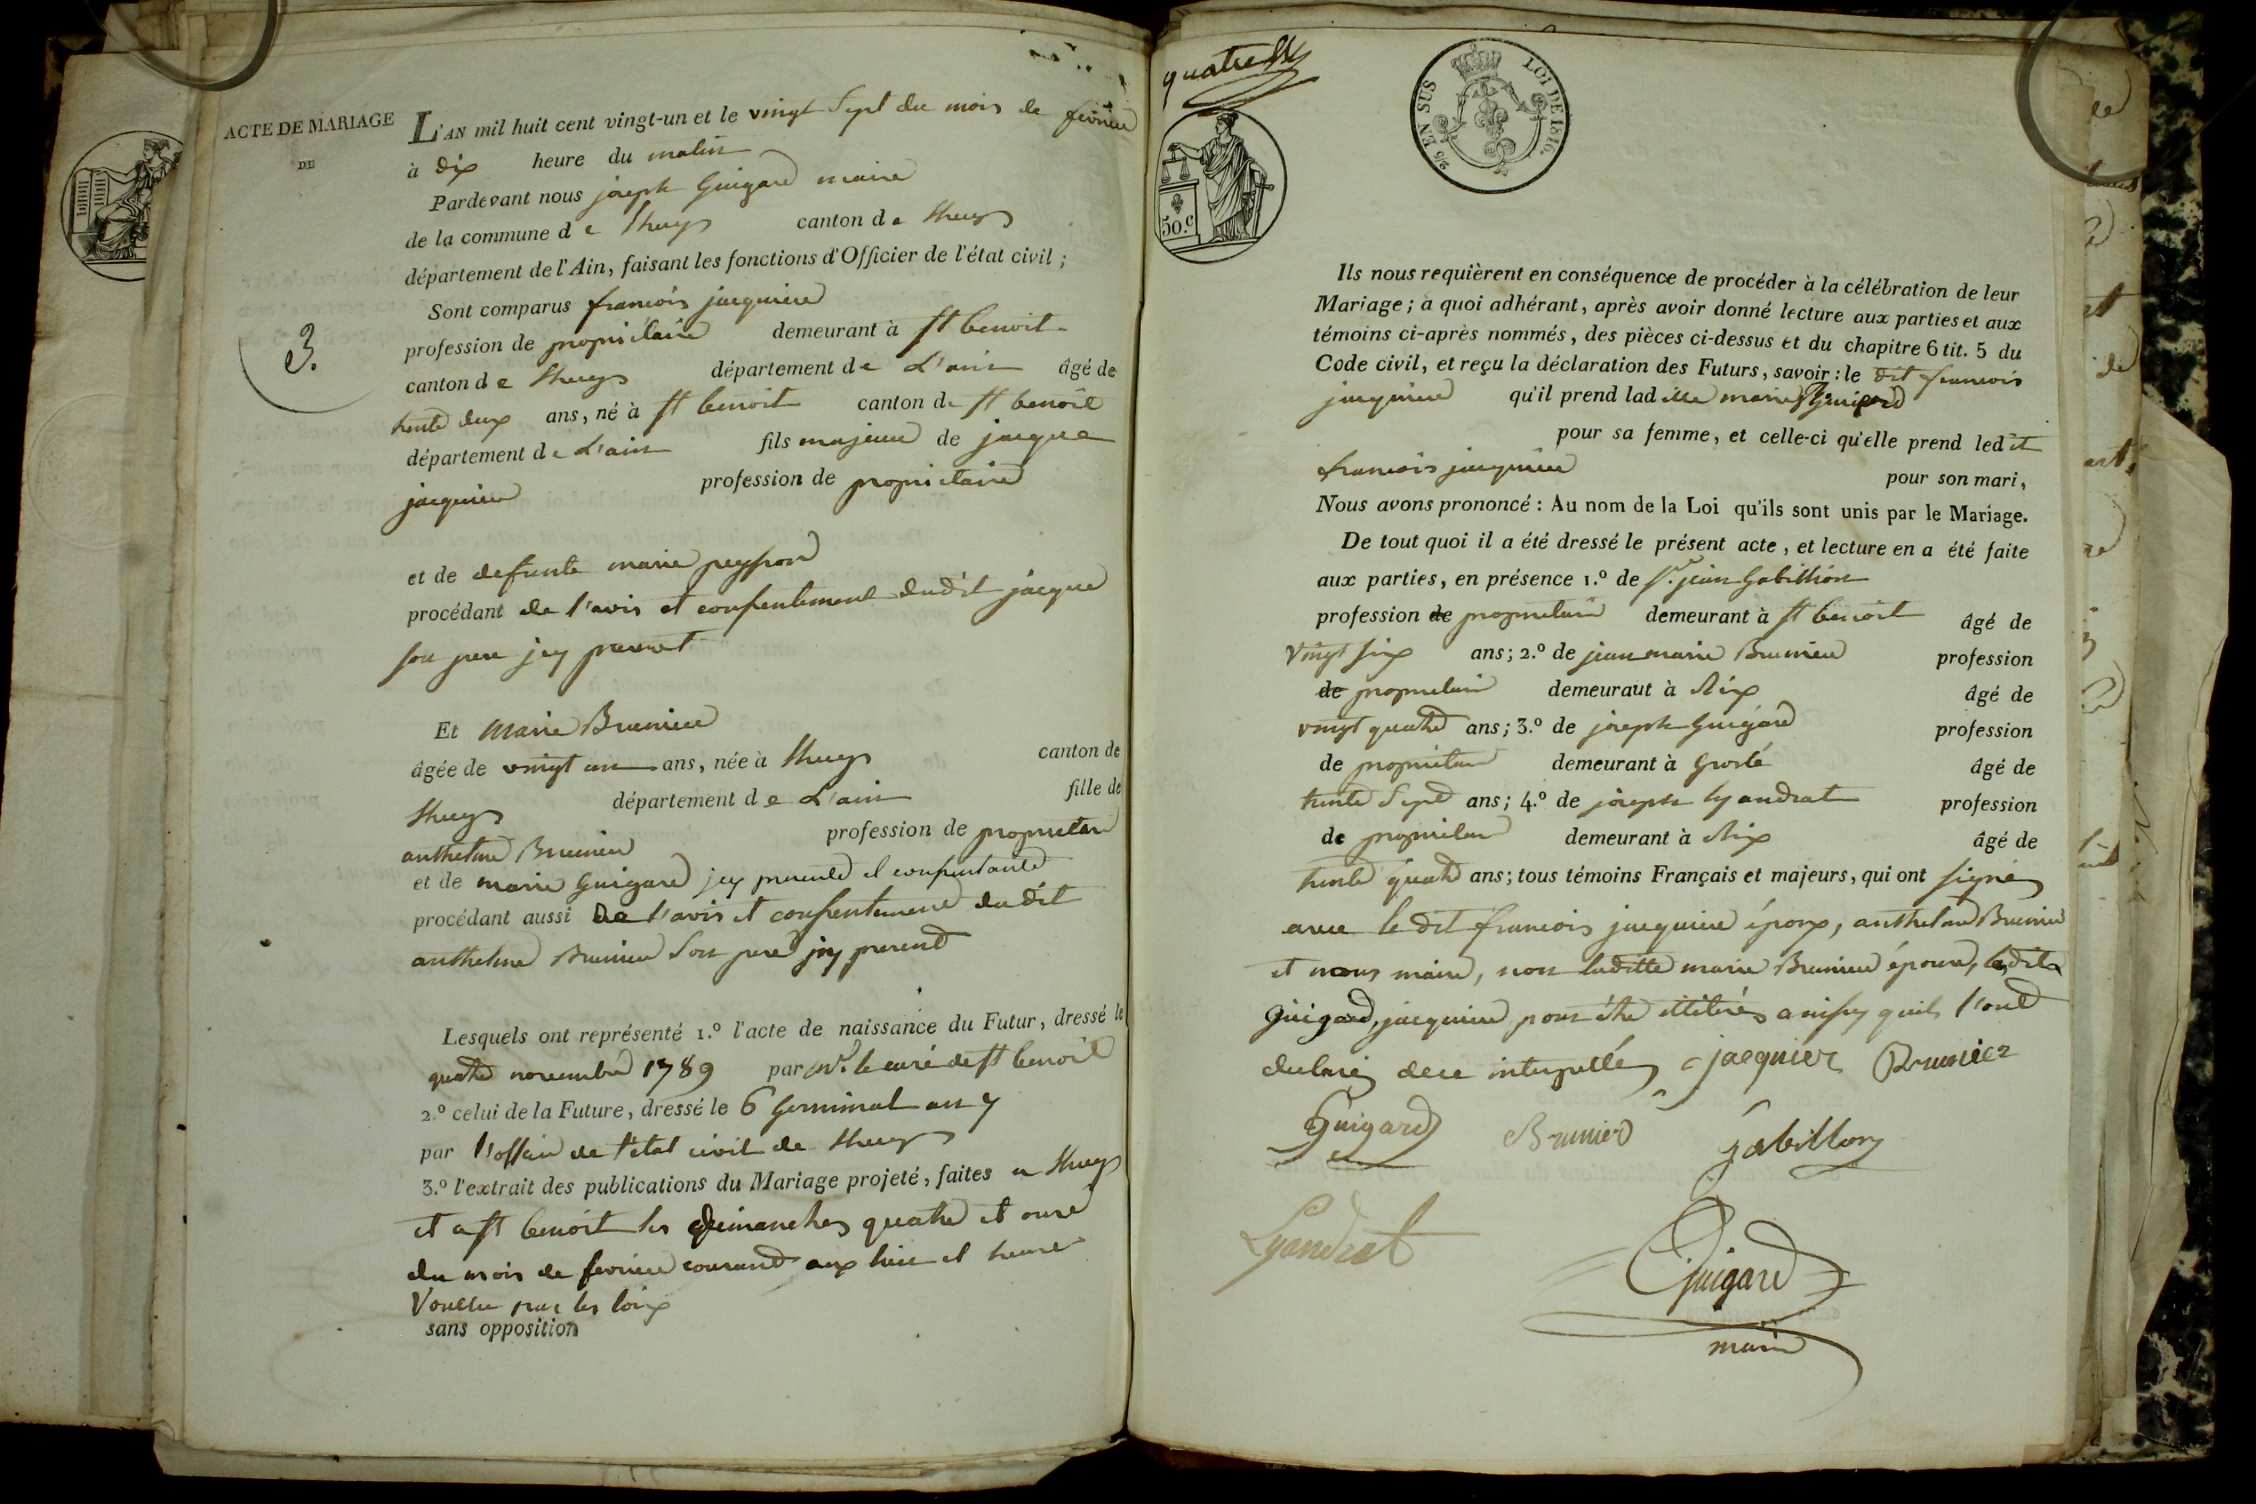 ACTE DE MARIAGE
DE
3.
L'AN mil huit cent vingt-un et le vingt Sept du mois de fevrier
à dix heure du matin
Pardevant nous joseph Guigard maire
de la commune de Lhuys canton de Lhuys
département de l'Ain, faisant les fonctions d'Officier de l'état civil ;
Sont comparus francois jacquier
profession de proprietaire demeurant à St benoit
canton de Lhuys département de L'ain âgé de
trente deux ans, né à St benoit canton de St benoit
département de L'ain fils majeur de jacque
jacquier profession de proprietaire
et de defunte marie peysson
procédant de l'avis et consentement dudit jacque
son pere jcy present
Et Marie Brunier
âgée de vingt un ans, née à Lhuys canton de
Lhuys département de L'ain fille de
anthelme Brunier profession de proprietaire
et de marie Guigard jcy presente et consentante
procédant aussi De l'avis et consentement dudit
anthelme Brunier Son pere jcy present
Lesquels ont représenté 1.º l'acte de naissance du Futur, dressé le
quatre novembre 1789 par Mr. le curé de St benoit
2.º celui de la Future, dressé le 6 Germinal an 7
par l'officier de l'état civil de Lhuys
3.º l'extrait des publications du Mariage projeté, faites a Lhuys
et a St benoit les dimanches quatre et onze
du mois de fevrier courant aux lieu et heure
Voulue par les loix
sans opposition
quatre
25 EN SUS LOI DE 1816.
50.c
Ils nous requièrent en conséquence de procéder à la célébration de leur
Mariage ; à quoi adhérant, après avoir donné lecture aux parties et aux
témoins ci-après nommés, des pièces ci-dessus et du chapitre 6 tit. 5 du
Code civil, et reçu la déclaration des Futurs, savoir : le dit francois
jacquier qu'il prend ladite marie
pour sa femme, et celle-ci qu'elle prend ledit
francois jacquier pour son mari,
Nous avons prononcé : Au nom de la Loi qu'ils sont unis par le Mariage.
De tout quoi il a été dressé le présent acte, et lecture en a été faite
aux parties, en présence 1.º de Sr. jean Gabillion
profession de proprietaire demeurant à St benoit âgé de
Vingt six ans ; 2.º de jean marie Brunier profession
de proprietaire demeuraut à Rix âgé de
vingt quatre ans ; 3.º de joseph Guigard profession
de proprietaire demeurant à Groslé âgé de
trente Sept ans ; 4.º de joseph Lyandrat profession
de proprietaire demeurant à Rix âgé de
trente quatre ans ; tous témoins Français et majeurs, qui ont signé
avec le dit francois jacquier époux, anthelme Brunier
et nous maire, non laditte marie Brunier épouse, lesdits
Guigard, jacquier pour être illitérés ainsy quils l'ont
declaré de ce interpellés jacquier Brunier
Guigard Brunier gabillon
Lyandrat
Guigard
maire